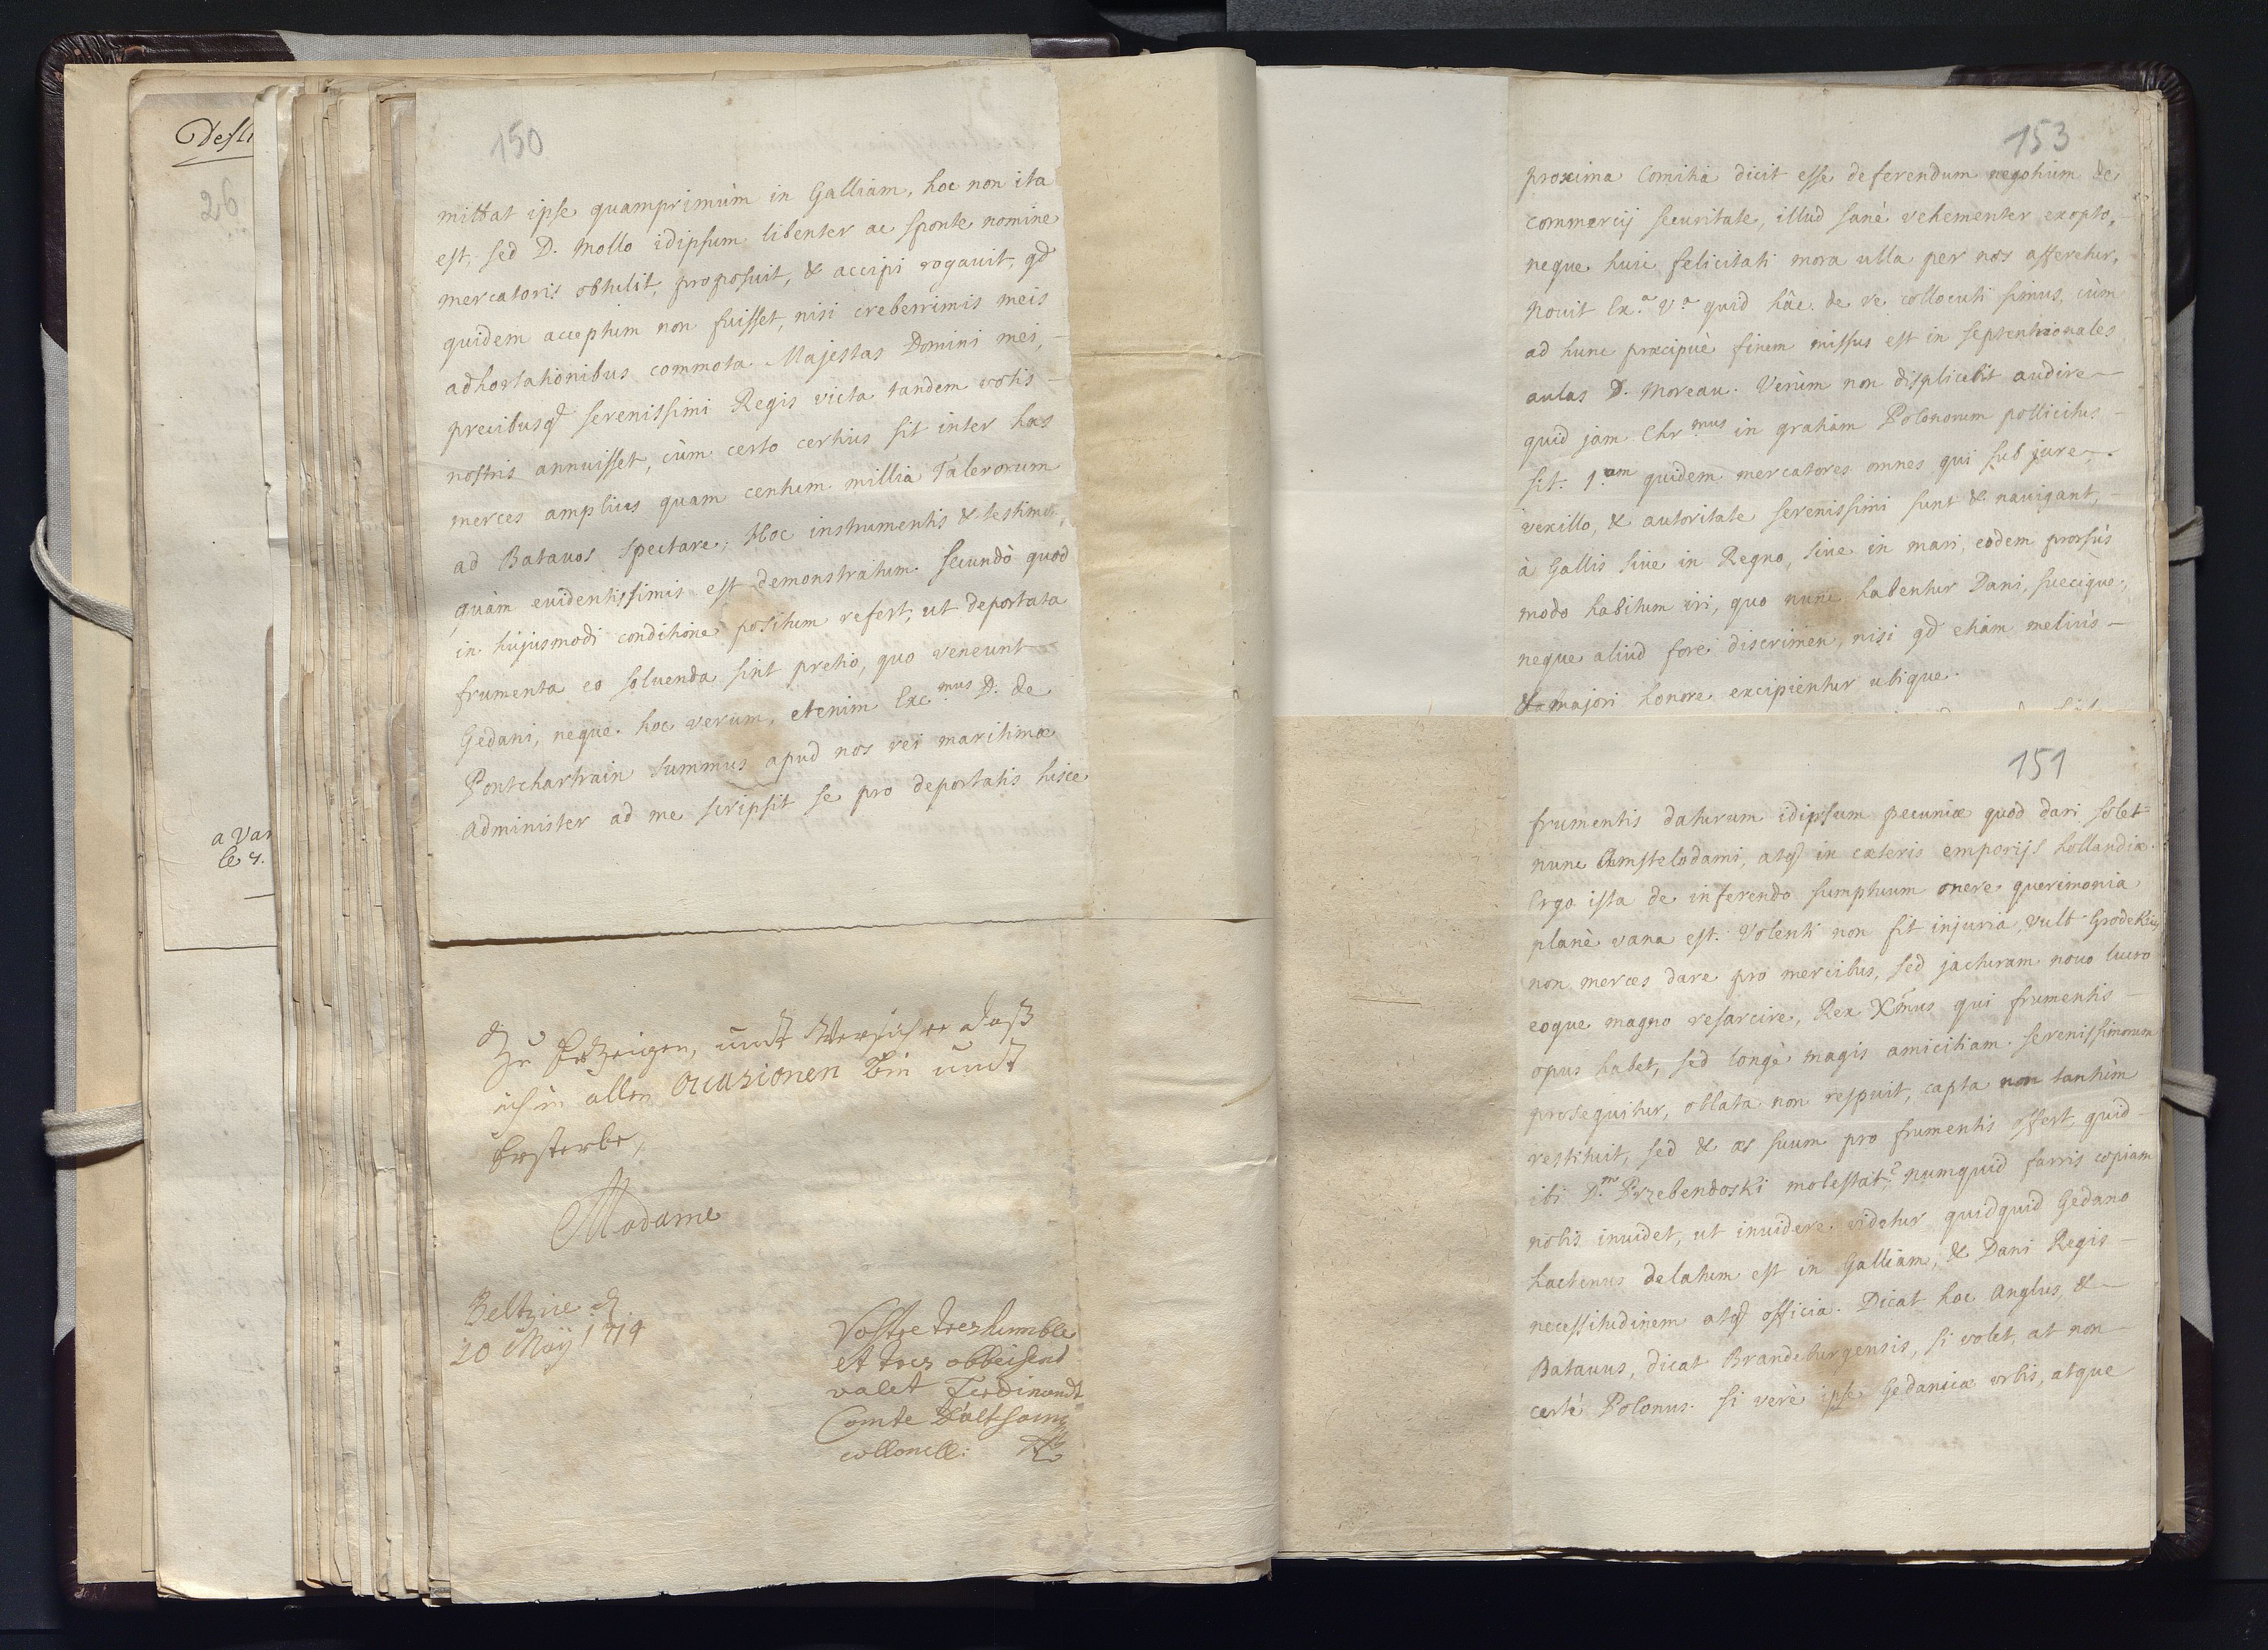 Desli
26
a Var
le 4.
150
mittat ipse quamprimùm in Galliam, hoc non ita
est, sed D. Mollo idipsum libenter ac sponte nomine
mercatoris obtulit, proposuit, & accipi rogauit, qd
quidem acceptum non fuisset, nisi creberrimis meis
adhortationibus commota Majestas Domini mei,
precibusq serenissimi Regis victa tandem votis
nostris annuisset, cùm certo certius sit inter has
merces amplius quam centum millia Talerorum
ad Batauos spectare; Hoc instrumentis & testimo,
quàm euidentissimis est demonstratum. Secundò quod
in hujusmodi conditione positum refert, ut deportata
frumenta eo soluenda sint pretio, quo veneunt
Gedani, neque hoc verum, etenim Exc.mus D. de
Pontchartrain summus apud nos rei maritimæ
Administer ad me scripsit se pro deportatis hisce
zu erzeigen, undt versichere daß
ich in allen occasionen bin undt
ersterbe,
Madame
20 Maÿ 1714
Vostre tres humble
et tres obbeisent
valet Ferdinandt
Comte
collonell:
153
proxima Comitia dicit esse deferendum negotium de
commercij securitate, illud sanè vehementer exopto,
neque huic felicitati mora ulla per nos afferetur,
Nouit Ex.a V.a quid hâc de re collocuti simus, cùm
ad hunc præcipuè finem missus est in septentrionales
aulas D. Moreau. Verùm non displicebit audire
quid jam Chr.mus in gratiam Polonorum pollicitus
sit. 1.am quidem mercatores omnes qui sub jure,
vexillo, & autoritate serenissimi sunt & nauigant,
à Gallis siue in Regno, siue in mari, eodem prorsùs
modo habitum iri, quo nunc habentur Dani, suecique,
neque aliud fore discrimen, nisi qd etiam meliùs
& majori honore excipientur ubique.
151
frumentis daturum idipsum pecuniæ quod dari solet
nunc Amstelodami, atq in cæteris emporijs hollandiæ.
Ergo ista de inferendo sumptuum onere querimonia
planè vana est. Volenti non fit injuria, vult Grodekius
non merces dare pro mercibus, sed jacturam nouo lucro
eoque magno resarcire, Rex Xmus qui frumentis
opus habet, sed longè magis amicitiam serenissimorum
prosequitur, oblata non respuit, capta non tantùm
restituit, sed & æs suum pro frumentis offert, quid
ibi D.m Przebendoski molestat? Numquid farris copiam
nobis inuidet, ut inuidere videtur quidquid Gedano
hactenus delatum est in Galliam, & Dani Regis
necessitudinem atq officia. Dicat hoc Anglus, &
Batauus, dicat Brandeburgensis, si volet, at non
certè Polonus. Si verè ipse Gedanicæ urbis, atque